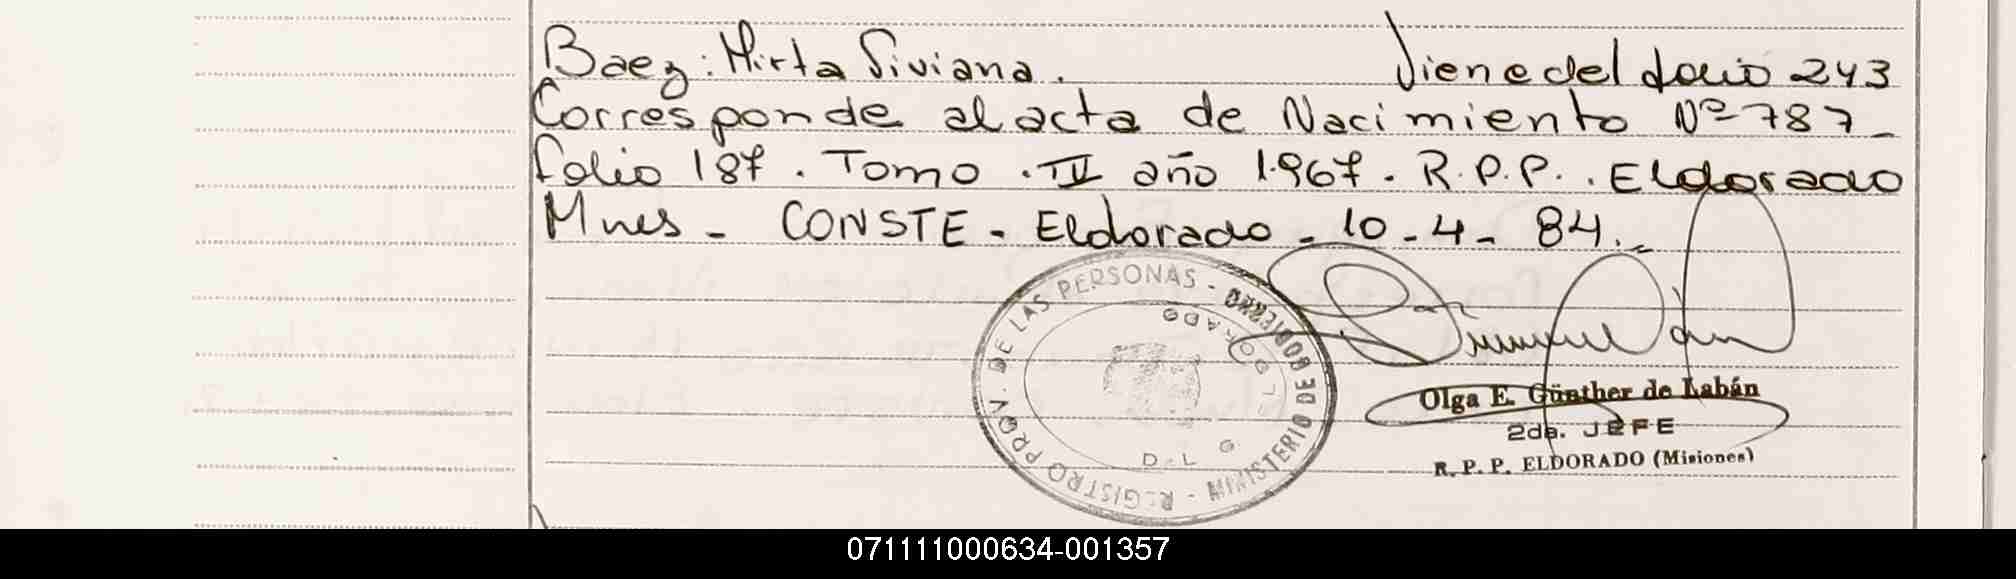 Baez: Mirta Viviana. Viene del folio 243
Corresponde al acta de Nacimiento Nº 787-
folio 187. Tomo. IV año 1.967. R.P.P.. Eldorado
Mnes - CONSTE - Eldorado - 10 - 4 - 84.-
REGISTRO PROV. DE LAS PERSONAS - MINISTERIO DE GOBIERNO
ELDORADO
D-L G
Olga E. Günther de Labán
2da. JEFE
R. P. P. ELDORADO (Misiones)
071111000634-001357